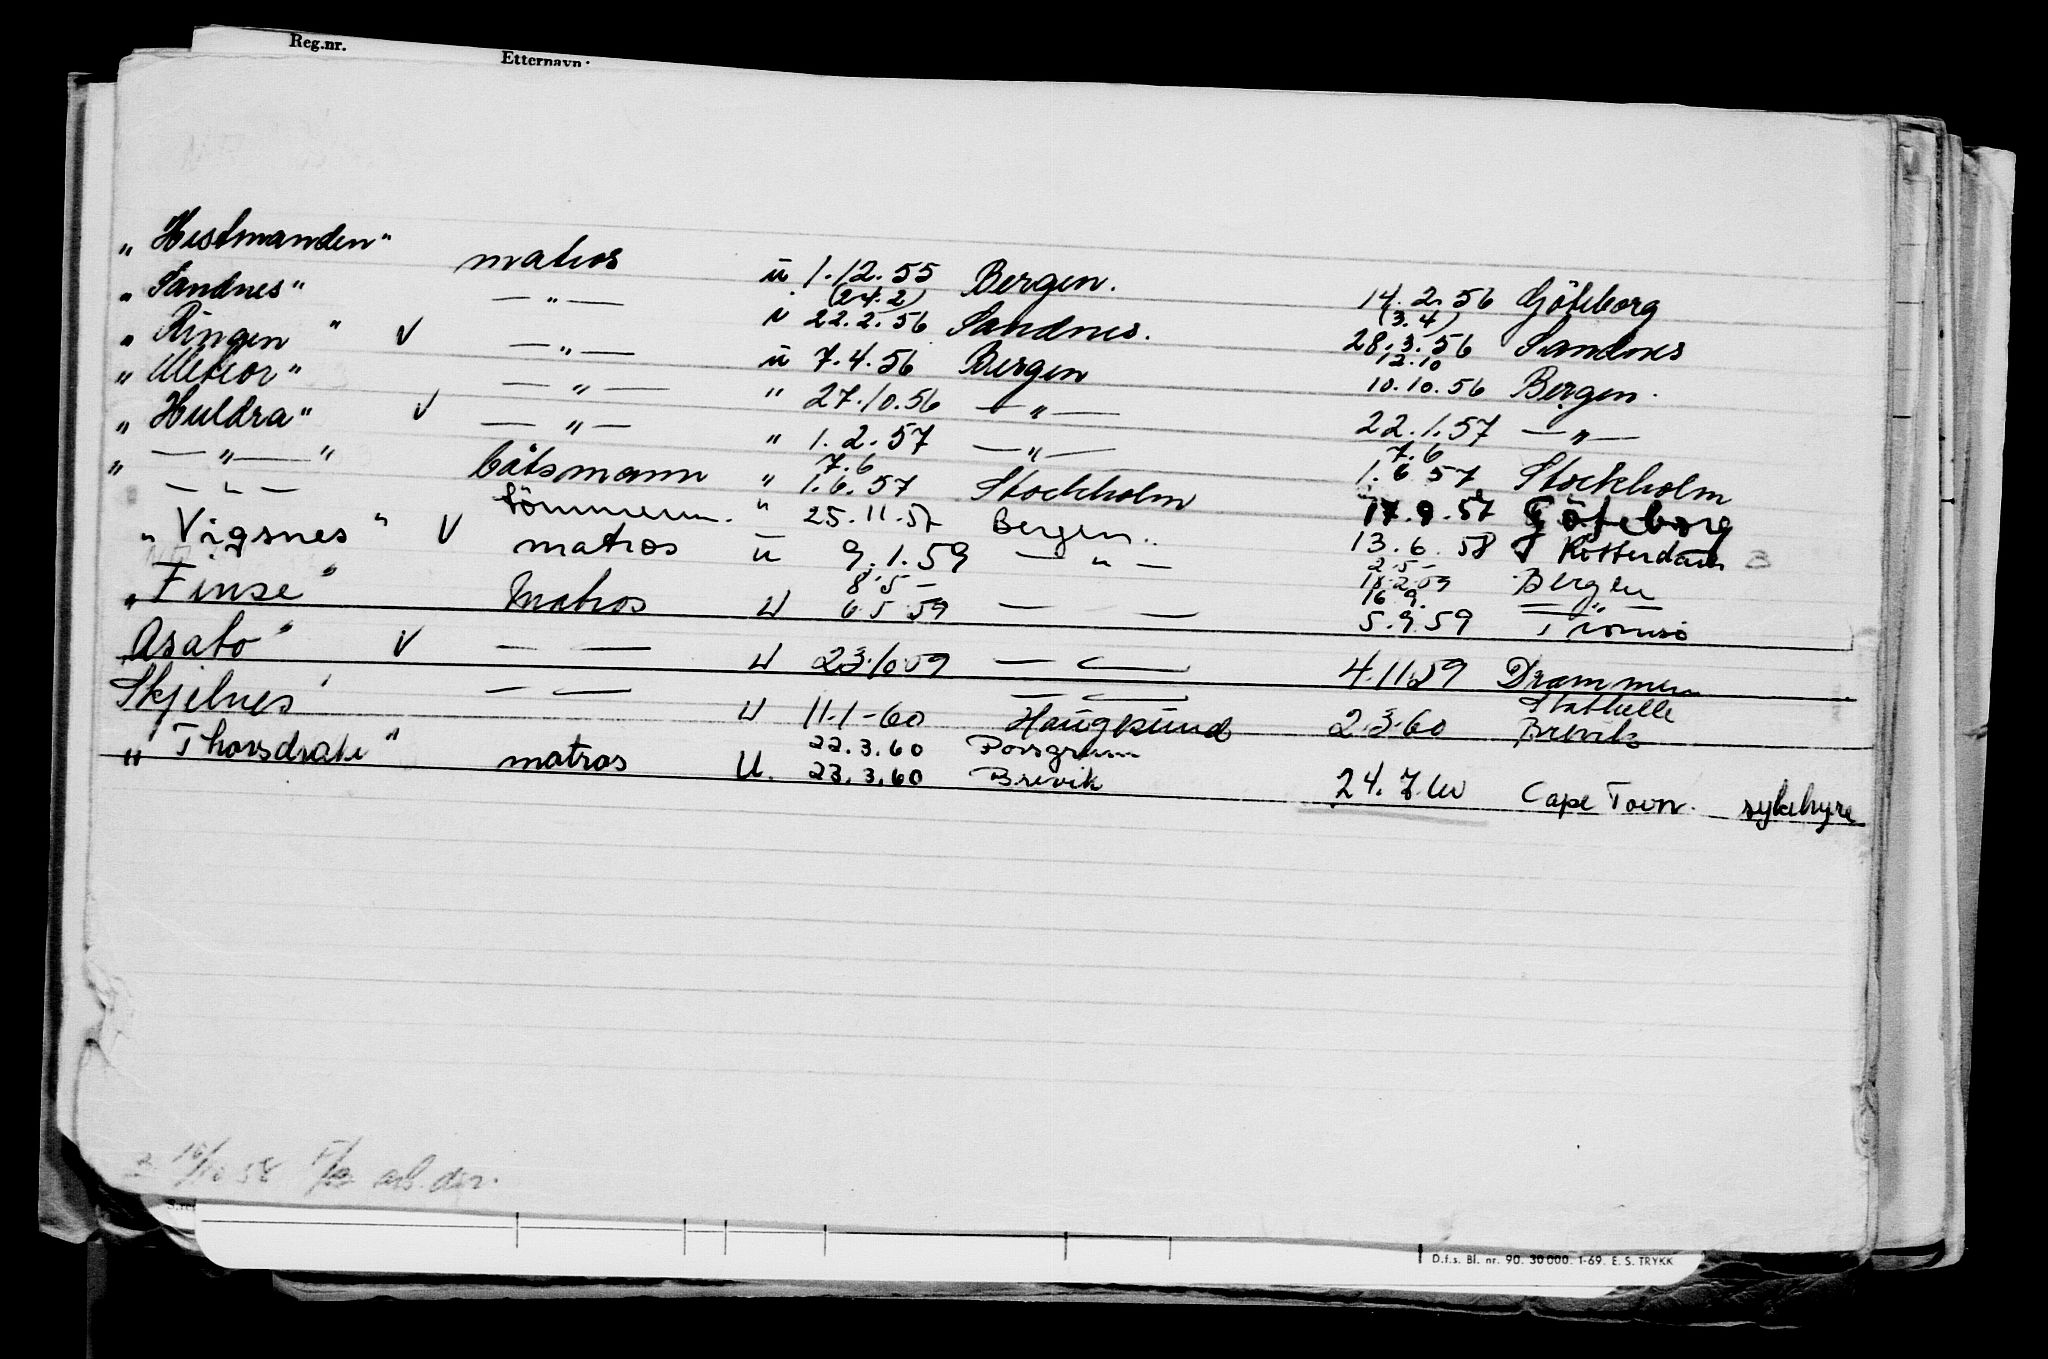 Reg.nr.
Etternavn:
„ Hestmanden" matros ü 1.12.55 Bergen. 14.2.56 Göteborg
(24.2) (3.4)
„ Sandnes" — " — ü 22.2.56 Sandnes. 28.3.56 Sandnes
12.10
„ Ringen " V — " — ü 7.4.56 Bergen 10.10.56 Bergen.
„ Meteor" — " — " 27.10.56 — " — 22.1.57 — " —
7.6
„ Huldra" V — " — " 1.2.57 — " — 1.6.57 Stockholm
7.6
„ — " — " båtsmann " 1.6.57 Stockholm 17.9.57 Göteborg
— " — tömmerm. " 25.11.57 Bergen. 13.6.58 Rotterdam
2.5
„ Vigsnes " V matros ü 9.1.59 — " — 18.2.59 Bergen
8.5 16.9.
„ Finse " Matros U 6.5.59 — — 5.9.59 Tromsö
Asabo " V — — U 23.10.59 — — 4.11.59 Drammen
Stathelle
Skjelnes' — — U 11.1-60 Haugesund 2.3.60 Brevik
22.3.60 Porsgrunn
„ Thorsdrake " matros U. 23.3.60 Brevik 24.7.60 Cape Town. sykehyre
16/10 58 arb. dir.
D.f.s. Bl. nr. 90. 30 000. 1-69. E. S. TRYKK